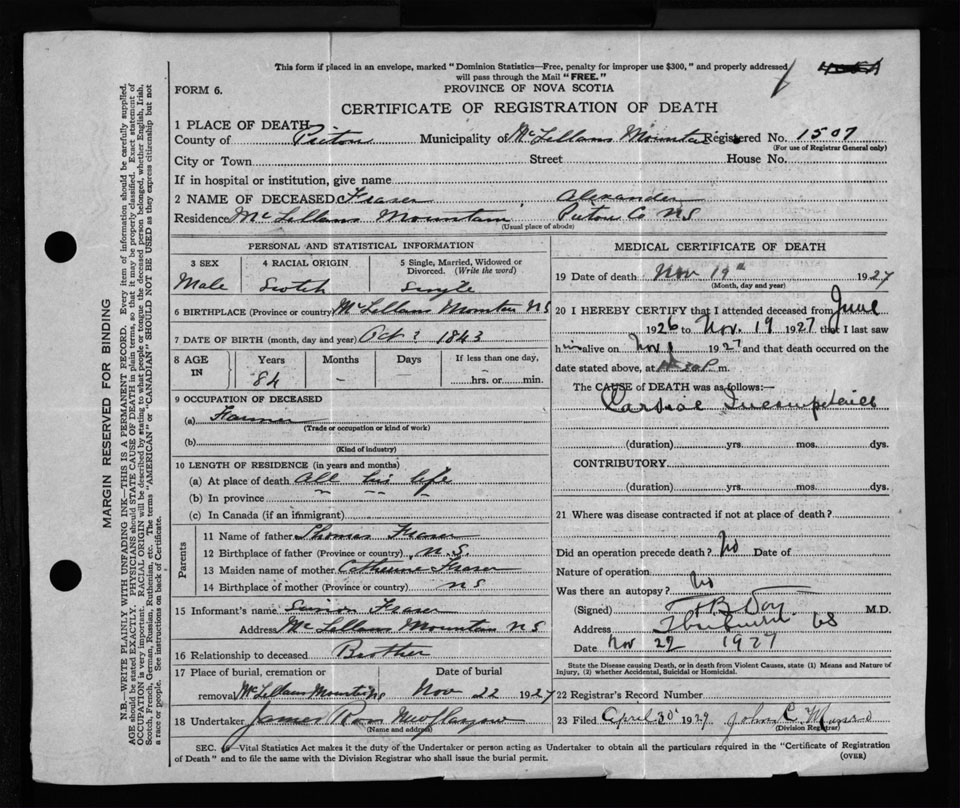 This form if placed in an envelope, marked "Dominion Statistics—Free, penalty for improper use $300," and properly addressed
will pass through the Mail "FREE."
FORM 6.
PROVINCE OF NOVA SCOTIA
CERTIFICATE OF REGISTRATION OF DEATH
1 PLACE OF DEATH
County of Pictou Municipality of McLellans Mountain Registered No. 1507
(For use of Registrar General only)
City or Town Street House No.
If in hospital or institution, give name
2 NAME OF DECEASED Fraser Alexander
Residence McLellans Mountain Pictou Co NS
(Usual place of abode)
PERSONAL AND STATISTICAL INFORMATION
3 SEX 4 RACIAL ORIGIN 5 Single, Married, Widowed or
Divorced. (Write the word)
Male Scotch Single
6 BIRTHPLACE (Province or country) McLellans Mountain NS
7 DATE OF BIRTH (month, day and year) Oct ? 1843
8 AGE IN Years Months Days If less than one day,
84 – – hrs. or min.
9 OCCUPATION OF DECEASED
(a) Farmer
(Trade or occupation or kind of work)
(b)
(Kind of industry)
10 LENGTH OF RESIDENCE (in years and months)
(a) At place of death all his life
(b) In province " " "
(c) In Canada (if an immigrant)
Parents
11 Name of father Thomas Fraser
12 Birthplace of father (Province or country) N.S.
13 Maiden name of mother Catherine Fraser
14 Birthplace of mother (Province or country) NS
15 Informant's name Simon Fraser
Address McLellans Mountain NS
16 Relationship to deceased Brother
17 Place of burial, cremation or Date of burial
removal McLellans Mount NS Nov 22 1927
18 Undertaker James Ross New Glasgow
(Name and address)
MEDICAL CERTIFICATE OF DEATH
19 Date of death Nov 19th 1927
(Month, day and year)
20 I HEREBY CERTIFY that I attended deceased from June
1926 to Nov. 19 1927 that I last saw
him alive on Nov 1927 and that death occurred on the
date stated above, at m.
The CAUSE of DEATH was as follows:—
Cardiac
(duration) yrs. mos. dys.
CONTRIBUTORY
(duration) yrs. mos. dys.
21 Where was disease contracted if not at place of death?
Did an operation precede death? No Date of
Nature of operation
Was there an autopsy? No
(Signed) M.D.
Address
Date Nov 22 1927
State the Disease causing Death, or in death from Violent Causes, state (1) Means and Nature of
Injury, (2) whether Accidental, Suicidal or Homicidal.
22 Registrar's Record Number
23 Filed April 30 1929 John C
(Division Registrar)
SEC. —Vital Statistics Act makes it the duty of the Undertaker or person acting as Undertaker to obtain all the particulars required in the "Certificate of Registration
of Death" and to file the same with the Division Registrar who shall issue the burial permit.
(OVER)
MARGIN RESERVED FOR BINDING
N.B.—WRITE PLAINLY WITH UNFADING INK—THIS IS A PERMANENT RECORD. Every item of information should be carefully supplied.
AGE should be stated EXACTLY. PHYSICIANS should STATE CAUSE OF DEATH in plain terms, so that it may be properly classified. Exact statement of
OCCUPATION is very important. RACIAL ORIGIN will be described by stating to what people or tongue the deceased person belonged, whether English, Irish,
Scotch, French, German, Russian, Ruthenian, etc. The terms "AMERICAN" or "CANADIAN" SHOULD NOT BE USED as they express citizenship but not
a race or people. See instructions on back of Certificate.